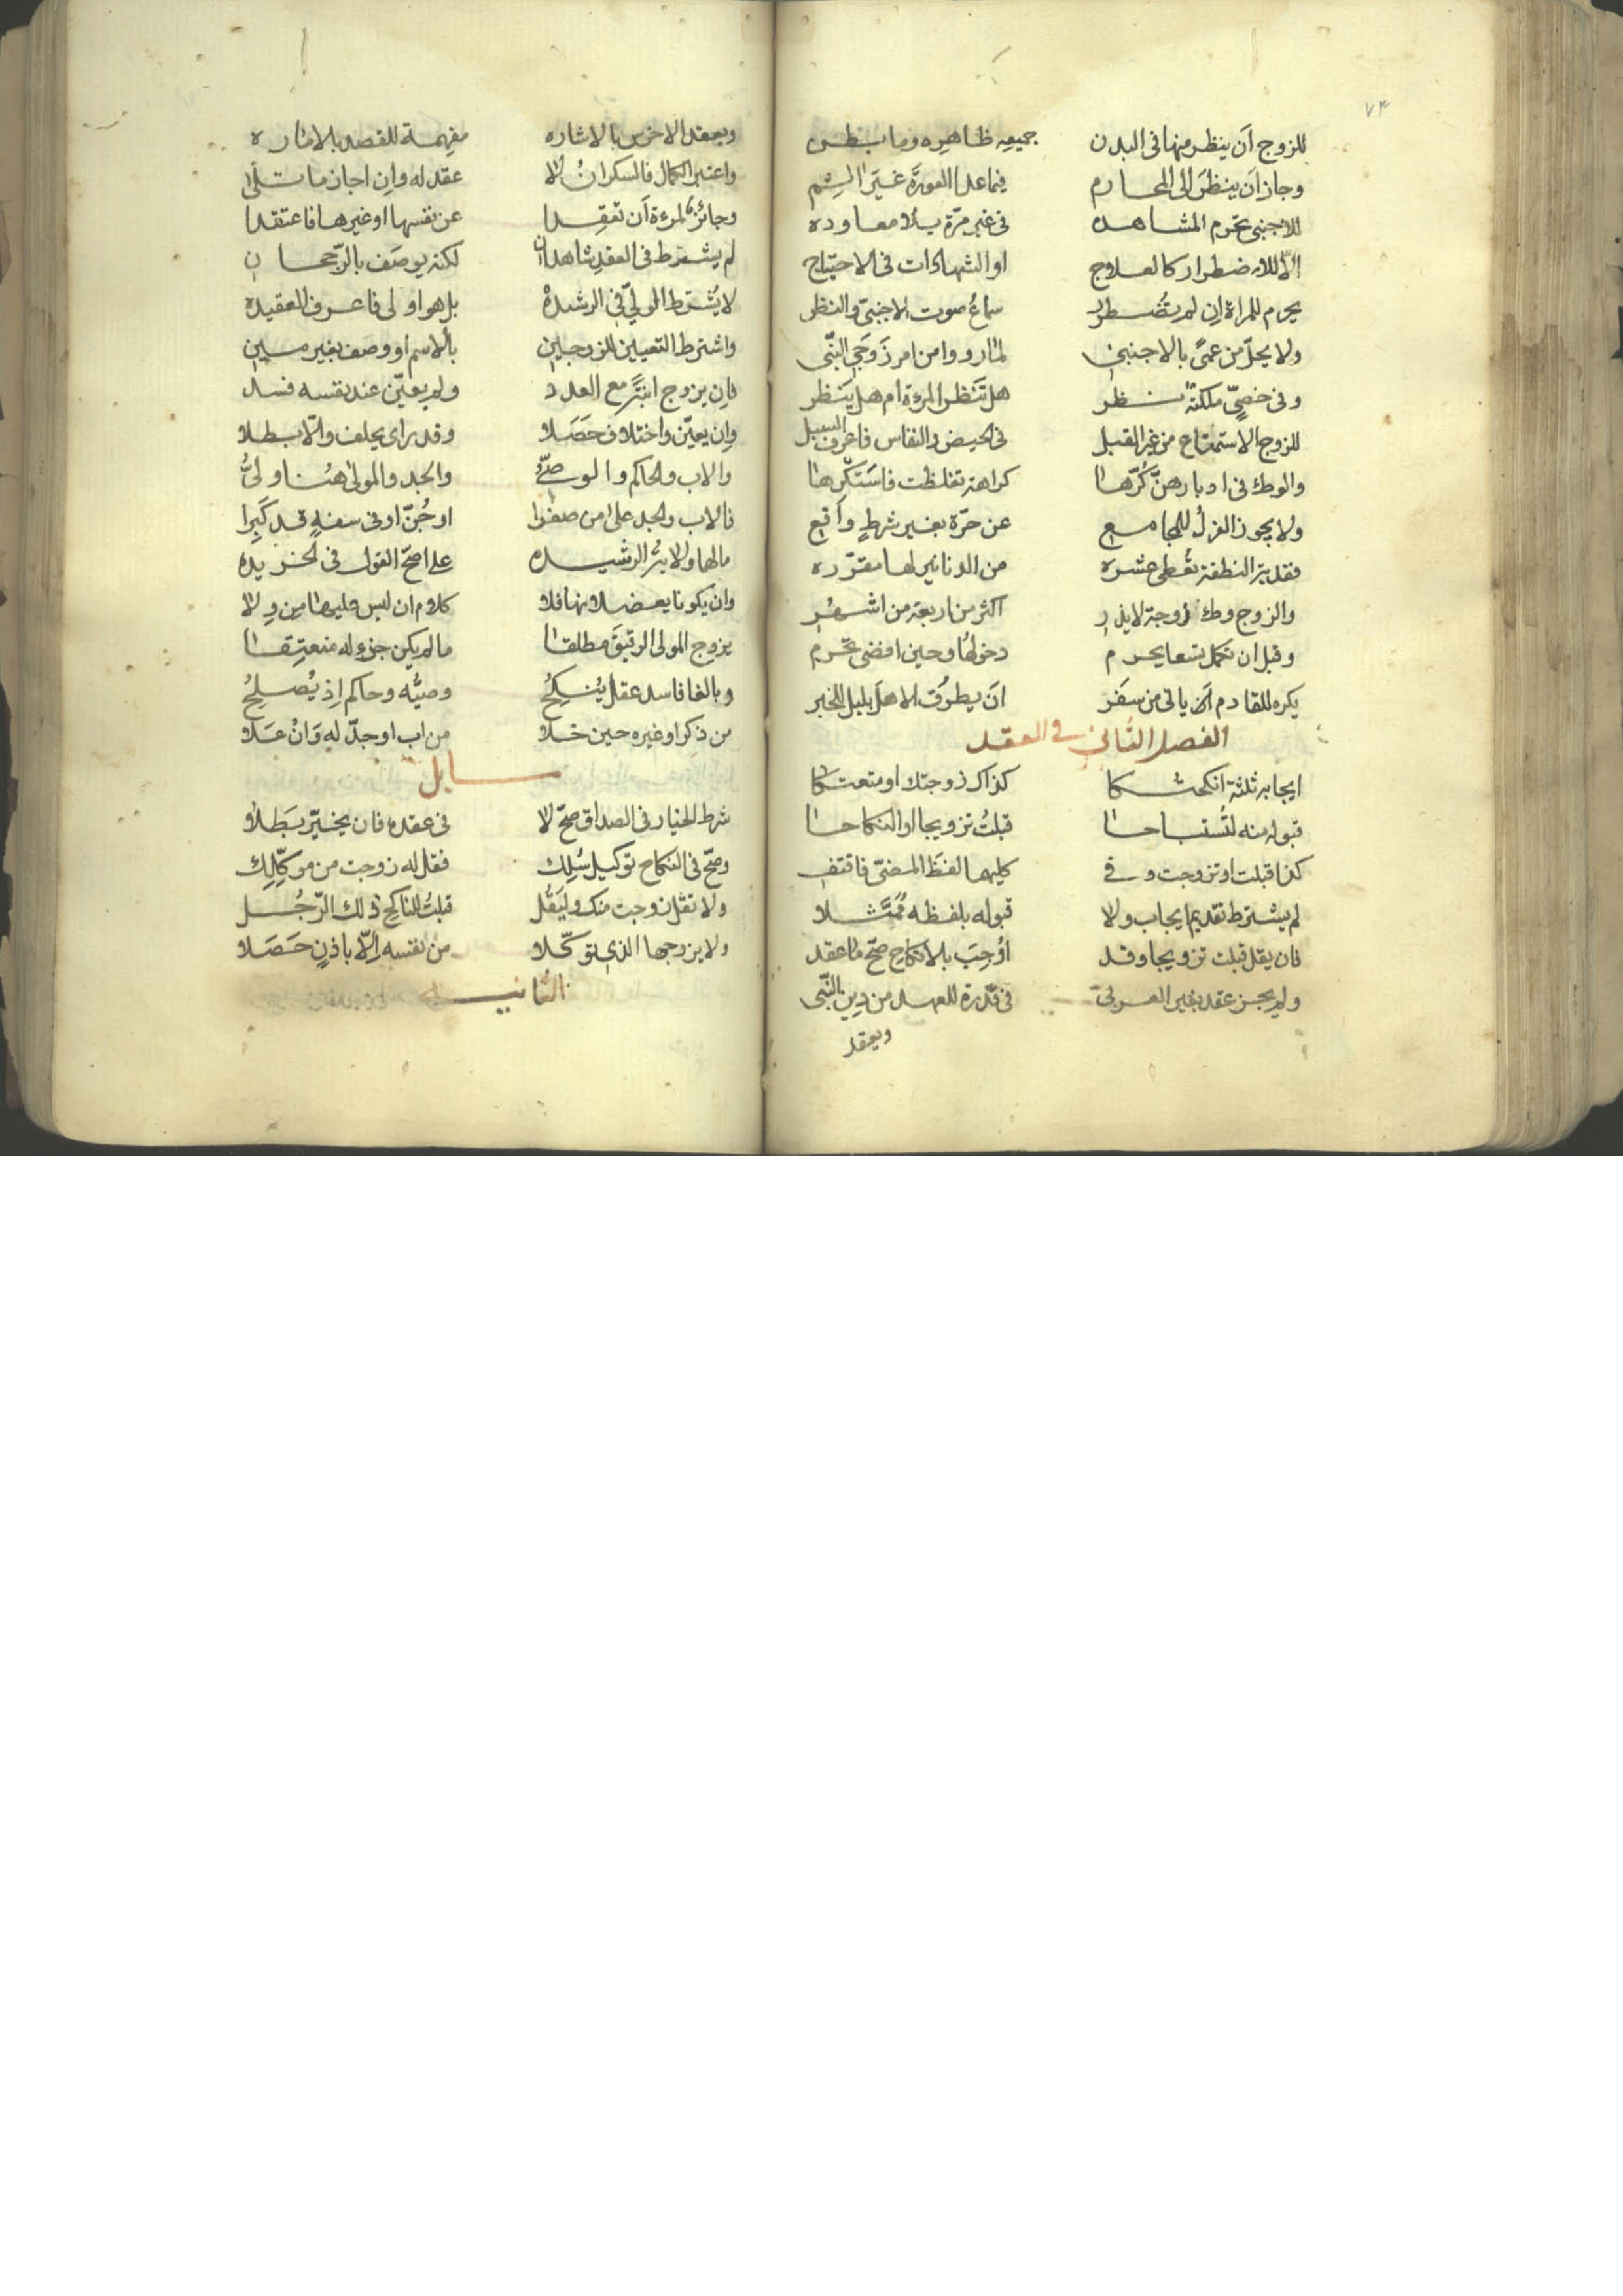 ٧٤
للزوج أن ينظر منها في البدن جميعه ظاهره وما بطن
وجاز أن ينظر الى المحارم فيما عدا العورة غير
للاجنبي تحرم المشاهده في غير مرّة بلا معاوده
إلا للاضطرار كالعلاج او الشهادات في الاحتياج
يحرم للمراة ان لم تضطر سماع صوت الاجنبي والنظر
ولا يحلّ من عمىً بالاجنبي لما رووا من امر زوجي النّبي
وفي خصيّ ملكته نظر هل تنظر المرءة ام هل ينظر
للزوج الاستمتاع من غير القبل في الحيض والنفاس فاعرف السبل
والوطئ في ادبارهنّ كرّها كراهة تغلظت فاستكرها
ولا يجوز العزل للمجامع عن حرّة بغير شرط واقع
فقدية النطفة تعطى عشره من الدنانير لها مقرّره
والزوج وطئ زوجة لا يذر اكثر من اربعة من اشهر
وقبل ان تكمل تسعا يحرم دخولها وحين افضى تحرم
يكره للقادم ان ياتي من سفر ان يطرق الاهل بليل للخبر
الفصل الثاني في العقد
ايجابه ثلثة انكحتكا كذاك زوجتك او متعتكا
قبوله منه لتستباحا قبلت تزويجا او النكاحا
كذا قبلت او تزوجت وفي كليهما لفظ المضيّ فاقتف
لم يشترط تقديم ايجاب ولا قبوله بلفظه ممثلا
فان يقل قبلت تزويجا وقد اوجب بالانكاح صحّ ما عقد
ولم يجز عقد بغير العربي في قدرة للعهد من دين النّبي
ويعقد
ويعقد الاخرس بالاشاره مفهمة للقصد بالاماره
واعتبر الكمال فالسكران لا عقد له وان اجاز ما تلا
وجائز للمرءة أن تعقدا عن نفسها او غيرها فاعتقدا
لم يشترط في العقد شاهدان لكنه يوصف بالرّجحان
لا يشترط الوليّ في الرشده بل هو اولى فاعرف العقيده
واشترط التعيين للزوجين بالاسم او وصف بغير مين
فان يزوج ابنة مع العدد ولم يعيّن عند نفسه فسد
وان يعيّن واختلاف حصلا وقد راى يحلف والّا بطلا
والاب والحاكم والوصيّ والجد والمولى هنا وليّ
فالاب والجد على من صغرا او جنّ او في سفه قد كبرا
مالها ولاية الرشيده على اصحّ القول في الخريده
وان يكونا يعضلانها فلا كلام ان ليس عليها من ولا
يزوج المولى الرقيق مطلقا ما لم يكن جزء له منعتقا
وبالغا فاسد عقل ينكح وصيّه وحاكم اذ يصلح
من ذكر او غيره حين خلا من اب او جدّ له وان علا
مسايل
شرط الخيار في الصداق صحّ لا في عقده فان يخيّر بطلا
وصحّ في النكاح توكيل سلك فقل له زوجت من موكّلك
ولا تقل زوجت منك وليقل قبلت للناكح ذلك الرّجل
ولا يزوجها الذي توكّلا من نفسه إلّا باذن حصلا
الثانيه